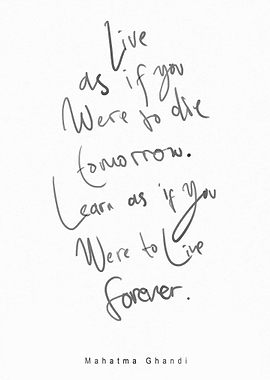 Live
as if you
Were to die
tomorrow.
Learn as if you
Were to Live
forever.
Mahatma Ghandi